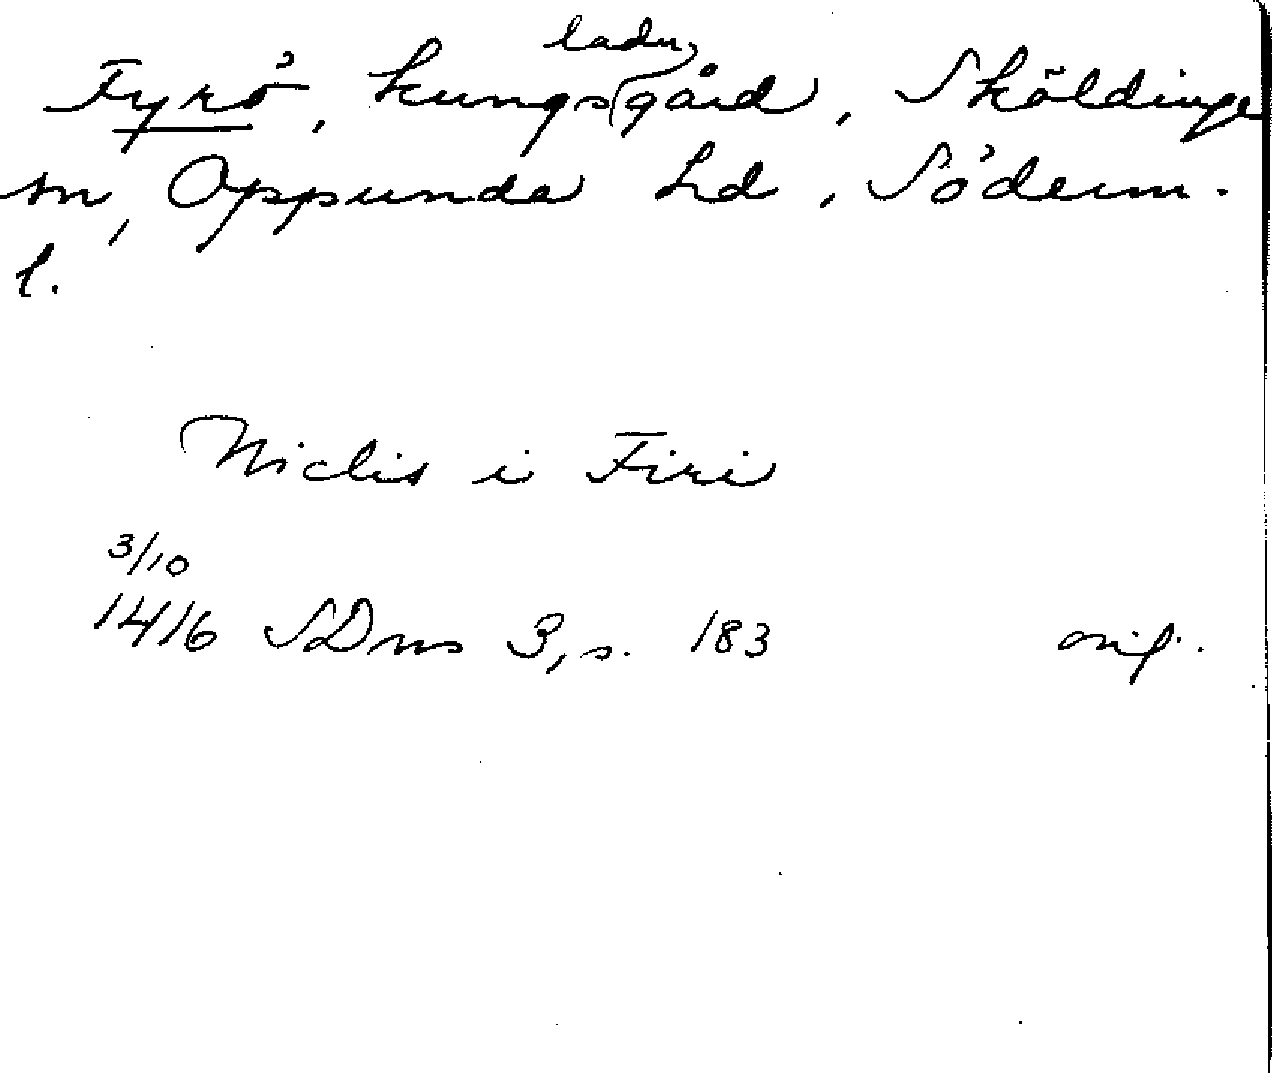 Fyrö, kungsladugård, Sköldinge
sn, Oppunda hd, Söderm-
l.
Niclis i Firi
3/10
1416 SDns 3, s. 183 orig.